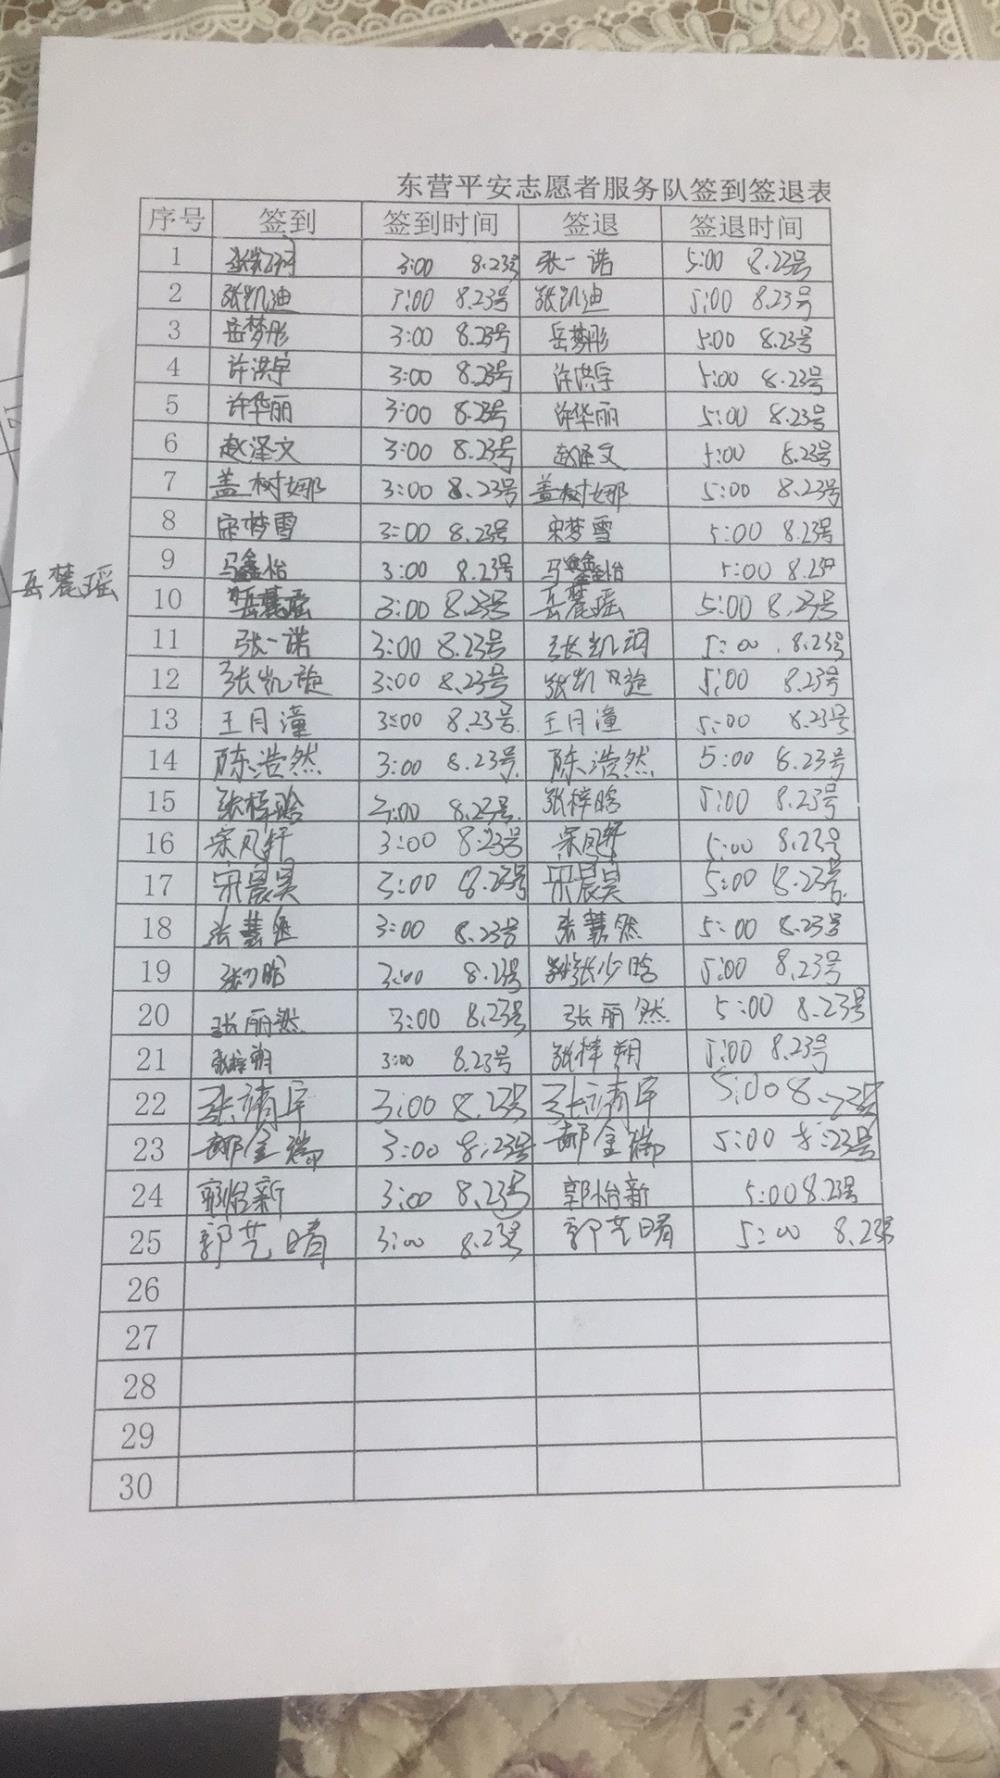 东营平安志愿者服务队签到签退表
序号 签到 签到时间 签退 签退时间
1 3:00 8.23号 张一诺 5:00 8.23号
2 张凯迪 3:00 8.23号 张凯迪 5:00 8.23号
3 岳梦彤 3:00 8.23号 岳梦彤 5:00 8.23号
4 许洪宇 3:00 8.23号 许洪宇 5:00 8.23号
5 许华丽 3:00 8.23号 许华丽 5:00 8.23号
6 赵泽文 3:00 8.23号 赵泽文 5:00 8.23号
7 盖树娜 3:00 8.23号 盖树娜 5:00 8.23号
8 宋梦雪 3:00 8.23号 宋梦雪 5:00 8.23号
9 马鑫怡 3:00 8.23号 马鑫怡 5:00 8.23号
岳麓瑶
10 岳麓瑶 3:00 8.23号 岳麓瑶 5:00 8.23号
11 张一诺 3:00 8.23号 张凯 5:00 8.23号
12 张凯旋 3:00 8.23号 张凯旋 5:00 8.23号
13 王月潼 3:00 8.23号 王月潼 5:00 8.23号
14 陈浩然 3:00 8.23号 陈浩然 5:00 8.23号
15 张梓晗 3:00 8.23号 张梓晗 5:00 8.23号
16 宋凡轩 3:00 8.23号 宋凡轩 5:00 8.23号
17 宋晨昊 3:00 8.23号 宋晨昊 5:00 8.23号
18 张慧 3:00 8.23号 张慧然 5:00 8.23号
19 张少晗 3:00 8.23号 张少晗 5:00 8.23号
20 张丽然 3:00 8.23号 张丽然 5:00 8.23号
21 张梓朔 3:00 8.23号 张梓朔 5:00 8.23号
22 张靖宇 3:00 8.23号 张靖宇 5:00 8.23号
23 郝金瑞 3:00 8.23号 郝金瑞 5:00 8.23号
24 郭怡新 3:00 8.23号 郭怡新 5:00 8.23号
25 郭艺晴 3:00 8.23号 郭艺晴 5:00 8.23号
26
27
28
29
30